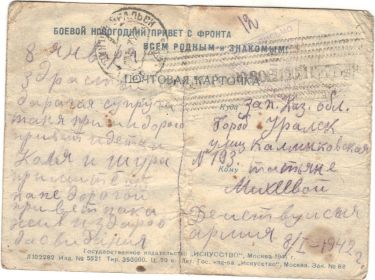 БОЕВОЙ НОВОГОДНИЙ ПРИВЕТ С ФРОНТА
ВСЕМ РОДНЫМ и ЗНАКОМЫМ!
ПОЧТОВАЯ КАРТОЧКА
8 января
Здраст
дарагая супруга
таня
привет детям
Коля и Шура
папе дорогой
привет пака
жив и здаров
дасвидания
Куда Зап. Каз. обл.
Город Уральск
улиц Калмыковская
N 193
Кому татьяне
Михеевой
Действуюшая
армия 8/I-1942 г
Государственное издательство „ИСКУССТВО", Москва 194
Л102282 Изд. № 5521 Тир. 350000. Ц. 20 к.